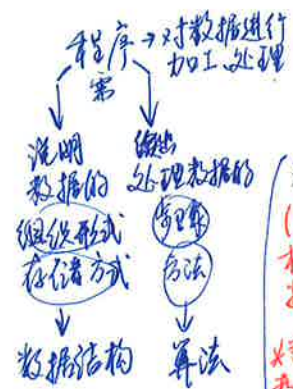 程序→对数据进行
加工、处理
需
说明
数据的
组织形式
存储方式
数据结构
给出
处理数据的
步骤
方法
算法